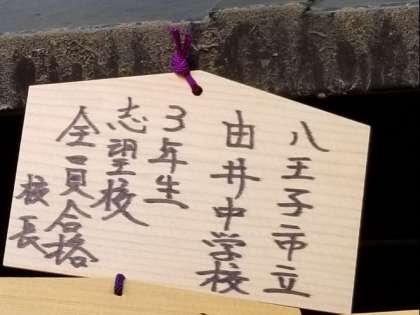 八王子市立
由井中学校
3年生
志望校
全員合格
校長